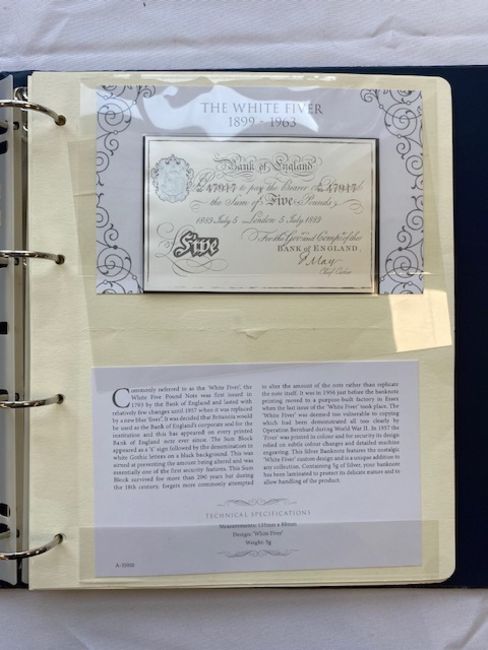 THE WHITE FIVER
1899 - 1963
Bank of England
47917 to pay the Bearer 47917
the Sum of Five Pounds
1889 July 5 London 5 July 1889
For the Gov.r and Comp.a of the
BANK of ENGLAND.
Five
F. May
Chief Cashier
Commonly referred to as the 'White Fiver', the
White Five Pound Note was first issued in
1793 by the Bank of England and lasted with
relatively few changes until 1957 when it was replaced
by a new blue 'fiver'. It was decided that Britannia would
be used as the Bank of England's corporate seal for the
institution and this has appeared on every printed
Bank of England note ever since. The Sum Block
appeared as a '£' sign followed by the denomination in
white Gothic letters on a black background. This was
aimed at preventing the amount being altered and was
essentially one of the first security features. This Sum
Block survived for more than 200 years but during
the 19th century, forgers more commonly attempted
to alter the amount of the note rather than replicate
the note itself. It was in 1956 just before the banknote
printing moved to a purpose-built factory in Essex
when the last issue of the 'White Fiver' took place. The
'White Fiver' was deemed too vulnerable to copying
which had been demonstrated all too clearly by
Operation Bernhard during World War II. In 1957 the
'Fiver' was printed in colour and for security its design
relied on subtle colour changes and detailed machine
engraving. This Silver Banknote features the nostalgic
'White Fiver' custom design and is a unique addition to
any collection. Containing 5g of Silver, your banknote
has been laminated to protect its delicate nature and to
allow handling of the product.
TECHNICAL SPECIFICATIONS
Measurements: 135mm x 80mm
Design: 'White Fiver'
Weight: 5g